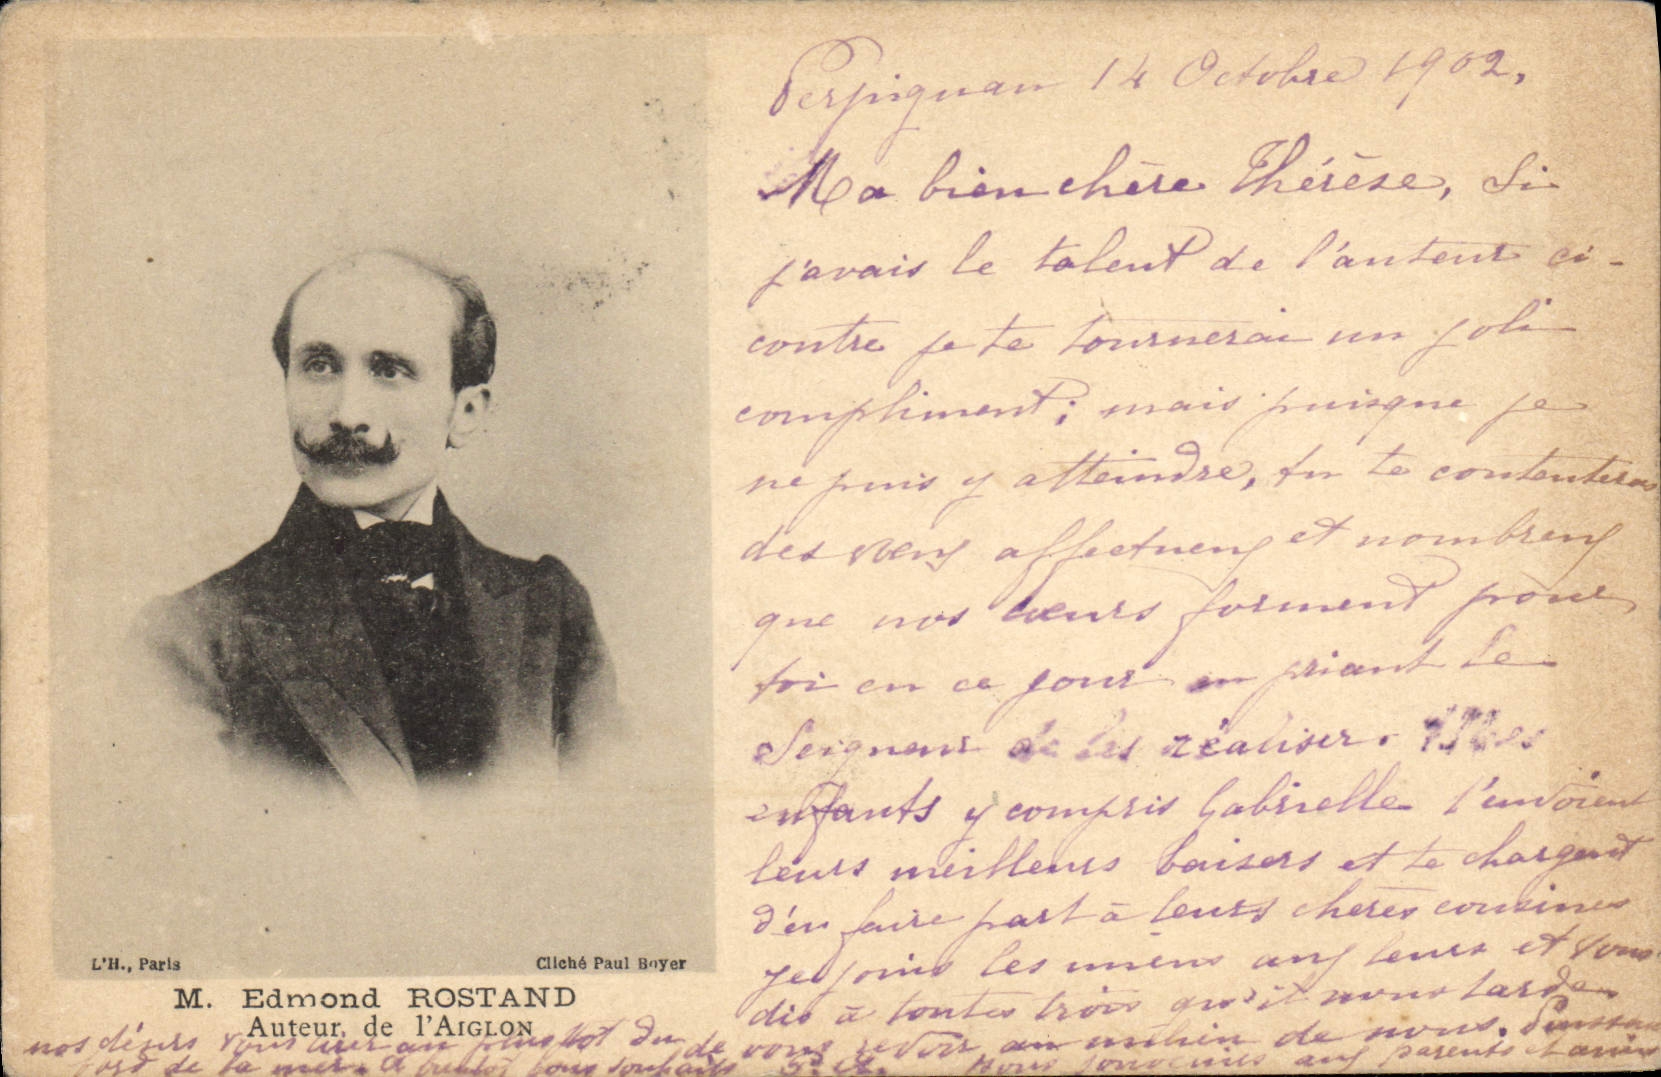 Perpignan 14 Octobre 1902,
Ma bien chère Thérèse, Si
j'avais le talent de l'auteur ci-
contre je te tournerai un joli
compliment; mais puisque je
ne puis y atteindre, tu te contenteras
des vœux affectueux et nombreux
que nos cœurs forment pour
toi en ce jour en priant le
Seigneur de les réaliser. Mes
enfants y compris Gabrielle t'envoient
leurs meilleurs baisers et te chargent
d'en faire part à leurs chères cousines
je joins les miens aux leurs et vous
dis à toutes trois qu'il nous tarde
de vous revoir au milieu de nous. Puissent
nos désirs vous tirer au plus tôt du
fond de la mer. A bientôt bons souhaits
Nous souvenirs aux parents et amis
L'H., Paris
Cliché Paul Boyer
M. Edmond ROSTAND
Auteur de l'AIGLON